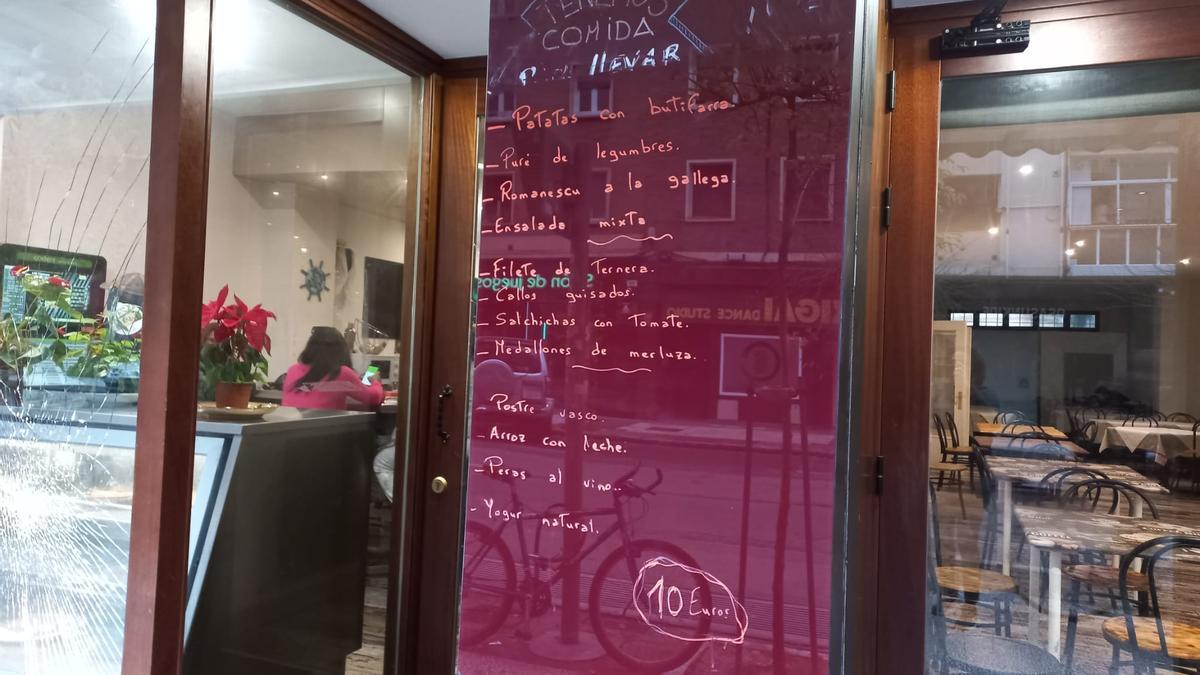 TENEMOS
COMIDA
PARA LLEVAR
- Patatas con butifarra
- Puré de legumbres.
- Romanescu a la gallega.
- Ensalada mixta
- Filete de Ternera.
- Callos guisados.
- Salchichas con Tomate.
- Medallones de merluza.
Postre vasco.
- Arroz con leche.
- Peras al vino..
- Yogur natural.
10 Euros
ón de juegos
DANCE STUDIO